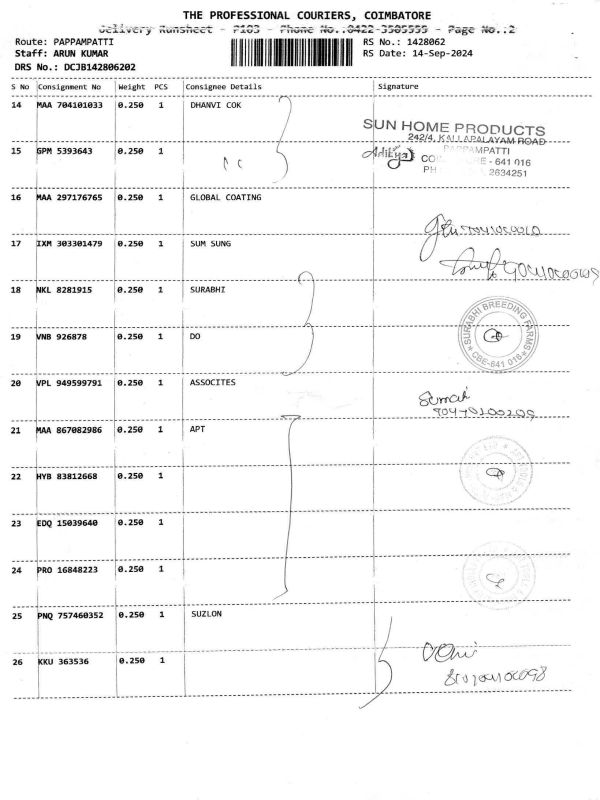 THE PROFESSIONAL COURIERS, COIMBATORE
Delivery Runsheet - P103 - Phone No.:0422-3505555 - Page No.:2
Route: PAPPAMPATTI RS No.: 1428062
Staff: ARUN KUMAR RS Date: 14-Sep-2024
DRS No.: DCJB142806202
S No Consignment No Weight PCS Consignee Details Signature
14 MAA 704101033 0.250 1 DHANVI COK
SUN HOME PRODUCTS
242/4, KALLAPALAYAM ROAD
PAPPAMPATTI
15 GPM 5393643 0.250 1
- 641 016
PH 2634251
16 MAA 297176765 0.250 1 GLOBAL COATING
17 IXM 303301479 0.250 1 SUM SUNG
18 NKL 8281915 0.250 1 SURABHI
SURABHI BREEDING FARMS
CBE-641 016
19 VNB 926878 0.250 1 DO
20 VPL 949599791 0.250 1 ASSOCITES
21 MAA 867082986 0.250 1 APT
22 HYB 83812668 0.250 1
23 EDQ 15039640 0.250 1
24 PRO 16848223 0.250 1
25 PNQ 757460352 0.250 1 SUZLON
26 KKU 363536 0.250 1